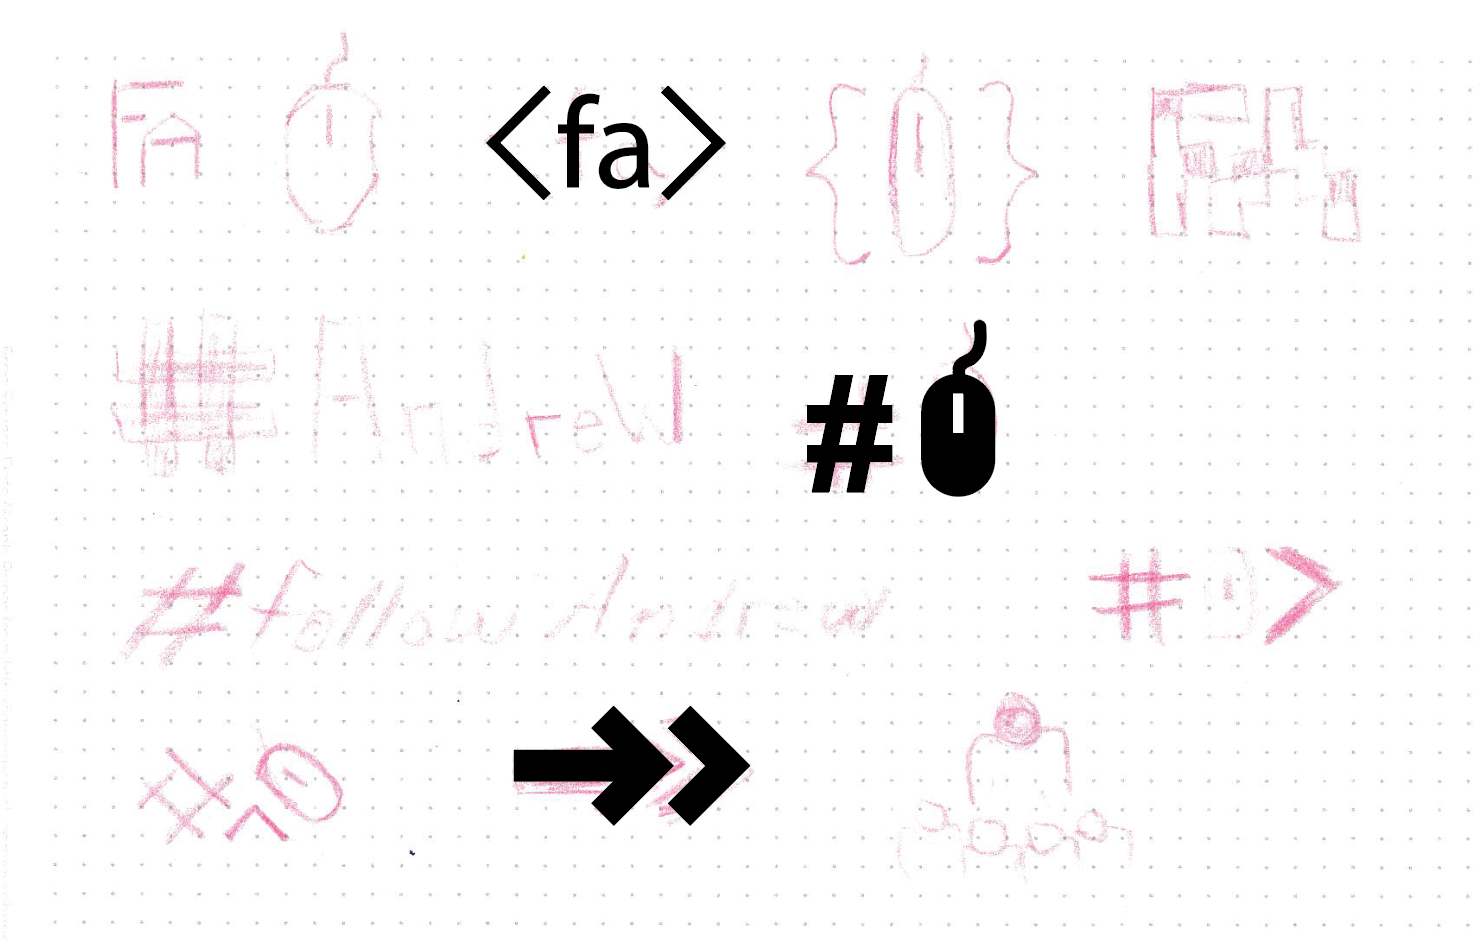 FA <fa> { } FA
# Andrew #
#follow Andrew # >
# >